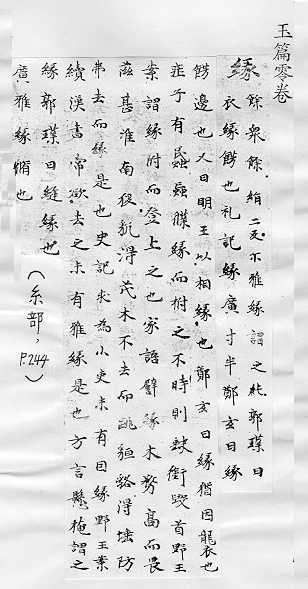 玉篇零卷
緣 餘泉餘絹二反尒雅緣謂之純郭璞曰
衣緣餝也礼記緣廣寸半鄭玄曰緣
餝邊也又曰明王以相緣也鄭玄曰緣猶因襲也
疰子有
緣而
之不時則蛟
首野王
案謂緣附而登上之也家語譬緣木務高而畏
滋甚淮南
得茂木不去而
弗去而緣是也史記求為小吏未有因緣野王案
續漢書常欲去之未有雅緣是也方言懸
謂之
緣郭璞曰縫緣也
廣雅緣循也
(糸部,
P.244)